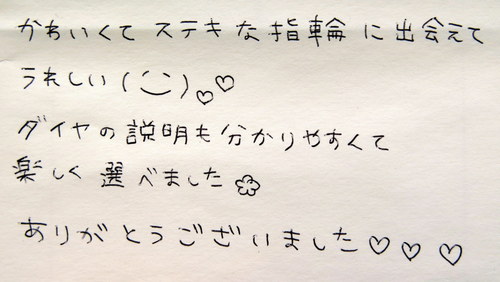 かわいくて ステキな指輪に出会えて
うれしい(¨̮)♡♡
ダイヤの説明も分かりやすくて
楽しく選べました✿
ありがとうございました♡♡♡